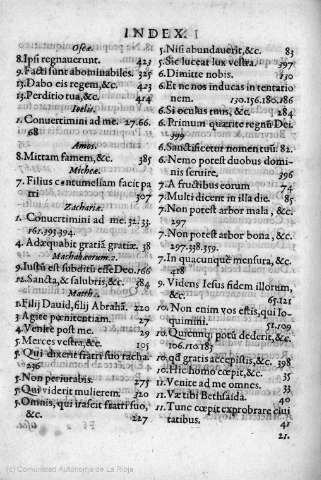 INDEX.
Oseæ.
8. Ipsi regnauerunt. 423
9. Facti sunt abominabiles. 325
13. Dabo eis regem, &c. 423
13. Perditio tua, &c. 414
Ioelis.
1. Conuertimini ad me. 27.66.
68
Amos.
8. Mittam famem, &c. 385
Micheæ.
7. Filius contumeliam facit pa
tri 307
Zachariæ.
1. Conuertimini ad me. 32.33.
162.393.394.
4. Adæquabit gratiã gratiæ. 38
Machabæorum. 2.
9. Iustũ est subditũ esse Deo. 166
12. Sancta, & salubris, &c. 84
Matth.
1. Filij Dauid, filij Abrahã. 220
3. Agite pœnitentiam. 27
4. Venite post me. 29
5. Merces vestra, &c. 105
5. Qui dixerit fratri suo racha.
236
5. Non periurabis. 275
5. Qui viderit mulierem. 320
5. Omnis, qui irascit fratri suo,
&c. 227
5. Nisi abundauerit, &c. 83
5. Sic luceat lux vestra. 397
6. Dimitte nobis. 130
6. Et ne nos inducas in tentatio
nem. 130.156.180.186
6. Si oculus tuus, &c. 284
6. Primum quærite regnũ Dei.
399
6. Sanctificetur nomen tuũ. 82.
6. Nemo potest duobus domi-
nis seruire, 396
7. A fructibus eorum 74
7. Multi dicent in illa die. 85
7. Non potest arbor mala, &c.
297
7. Non potest arbor bona, &c.
297.338.359.
7. In quacunque mensura, &c.
418
9. Videns Iesus fidem illorum,
&c. 65.121
10. Non enim vos estis, qui lo-
quimini. 51.109
10. Quicumq; potũ dederit, &c.
106.110.183
10. qđ gratis accepistis, &c. 398
10. Hic homo cœpit, &c. 35
11. Venite ad me omnes. 33
11. Væ tibi Bethsaida. 35
11. Tunc cœpit exprobrare ciui
tatibus. 41
21.
(c) Comunidad Autónoma de La Rioja